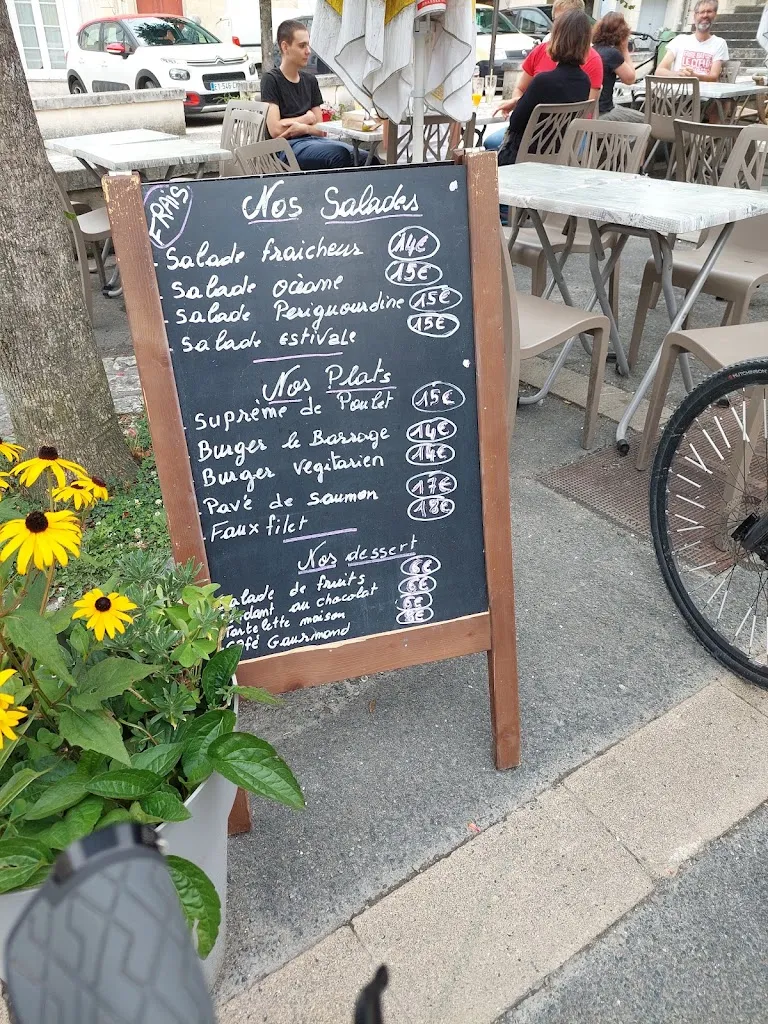 FRAIS
Nos Salades
- Salade fraicheur 14€
- Salade océane 15€
- Salade Periguourdine 15€
- Salade estivale 15€
Nos Plats
- Suprême de Poulet 15€
- Burger le Barrage 14€
- Burger vegitarien 14€
- Pavé de saumon 17€
- Faux filet 18€
Nos dessert
Salade de fruits 6€
au chocolat 6€
Tartelette maison 6€
Café Gourmand 8€
HUTCHINSON